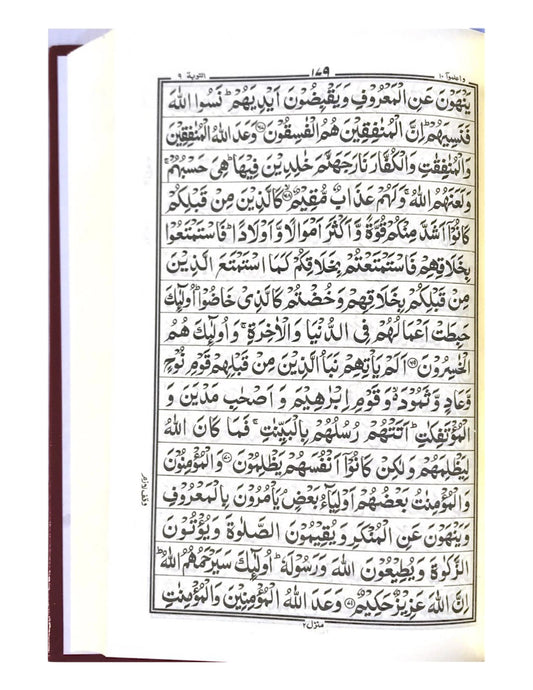 التوبة ٩
١٧٩
واعلموآ ١٠
يَنْهَوْنَ عَنِ الْمَعْرُوْفِ وَيَقْبِضُوْنَ اَيْدِيَهُمْ ؕ نَسُوا اللّٰهَ
فَنَسِيَهُمْ ؕ اِنَّ الْمُنٰفِقِيْنَ هُمُ الْفٰسِقُوْنَ ﴿۶۷﴾ وَعَدَ اللّٰهُ الْمُنٰفِقِيْنَ
وَالْمُنٰفِقٰتِ وَالْكُفَّارَ نَارَ جَهَنَّمَ خٰلِدِيْنَ فِيْهَا ؕ هِيَ حَسْبُهُمْ ۚ
وَلَعَنَهُمُ اللّٰهُ ۚ وَلَهُمْ عَذَابٌ مُّقِيْمٌ ﴿۶۸﴾ كَالَّذِيْنَ مِنْ قَبْلِكُمْ
كَانُوْۤا اَشَدَّ مِنْكُمْ قُوَّةً وَّاَكْثَرَ اَمْوَالًا وَّاَوْلَادًا ؕ فَاسْتَمْتَعُوْا
بِخَلَاقِهِمْ فَاسْتَمْتَعْتُمْ بِخَلَاقِكُمْ كَمَا اسْتَمْتَعَ الَّذِيْنَ
مِنْ قَبْلِكُمْ بِخَلَاقِهِمْ وَخُضْتُمْ كَالَّذِيْ خَاضُوْا ؕ اُولٰٓئِكَ
حَبِطَتْ اَعْمَالُهُمْ فِي الدُّنْيَا وَالْاٰخِرَةِ ۚ وَاُولٰٓئِكَ هُمُ
الْخٰسِرُوْنَ ﴿۶۹﴾ اَلَمْ يَاْتِهِمْ نَبَاُ الَّذِيْنَ مِنْ قَبْلِهِمْ قَوْمِ نُوْحٍ
وَّعَادٍ وَّثَمُوْدَ ۙ وَقَوْمِ اِبْرٰهِيْمَ وَاَصْحٰبِ مَدْيَنَ وَ
الْمُؤْتَفِكٰتِ ؕ اَتَتْهُمْ رُسُلُهُمْ بِالْبَيِّنٰتِ ۚ فَمَا كَانَ اللّٰهُ
لِيَظْلِمَهُمْ وَلٰكِنْ كَانُوْۤا اَنْفُسَهُمْ يَظْلِمُوْنَ ﴿۷۰﴾ وَالْمُؤْمِنُوْنَ
وَالْمُؤْمِنٰتُ بَعْضُهُمْ اَوْلِيَآءُ بَعْضٍ ۘ يَاْمُرُوْنَ بِالْمَعْرُوْفِ
وَيَنْهَوْنَ عَنِ الْمُنْكَرِ وَيُقِيْمُوْنَ الصَّلٰوةَ وَيُؤْتُوْنَ
الزَّكٰوةَ وَيُطِيْعُوْنَ اللّٰهَ وَرَسُوْلَهٗ ؕ اُولٰٓئِكَ سَيَرْحَمُهُمُ اللّٰهُ ؕ
اِنَّ اللّٰهَ عَزِيْزٌ حَكِيْمٌ ﴿۷۱﴾ وَعَدَ اللّٰهُ الْمُؤْمِنِيْنَ وَالْمُؤْمِنٰتِ
منزل ٢